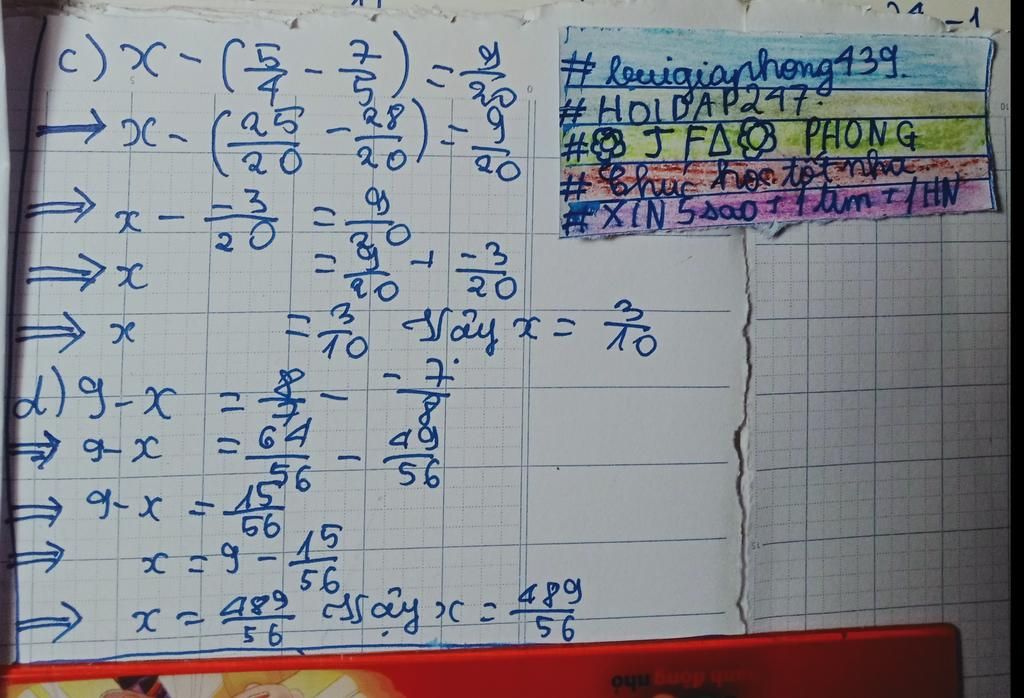 c) x - (5/4 - 7/5) = 9/20
⇒ x - (25/20 - 28/20) = 9/20
⇒ x - -3/20 = 9/20
⇒ x = 9/20 + -3/20
⇒ x = 3/10 Vậy x = 3/10
d) 9 - x = 8/7 - -7/8
⇒ 9 - x = 64/56 - 49/56
⇒ 9 - x = 15/56
⇒ x = 9 - 15/56
⇒ x = 489/56 Vậy x = 489/56
# buigiaphong439.
# HOIDAP247.
# J F∆ PHONG
# Chúc học tốt nha
# XIN 5 sao + 1 tim + 1 HN